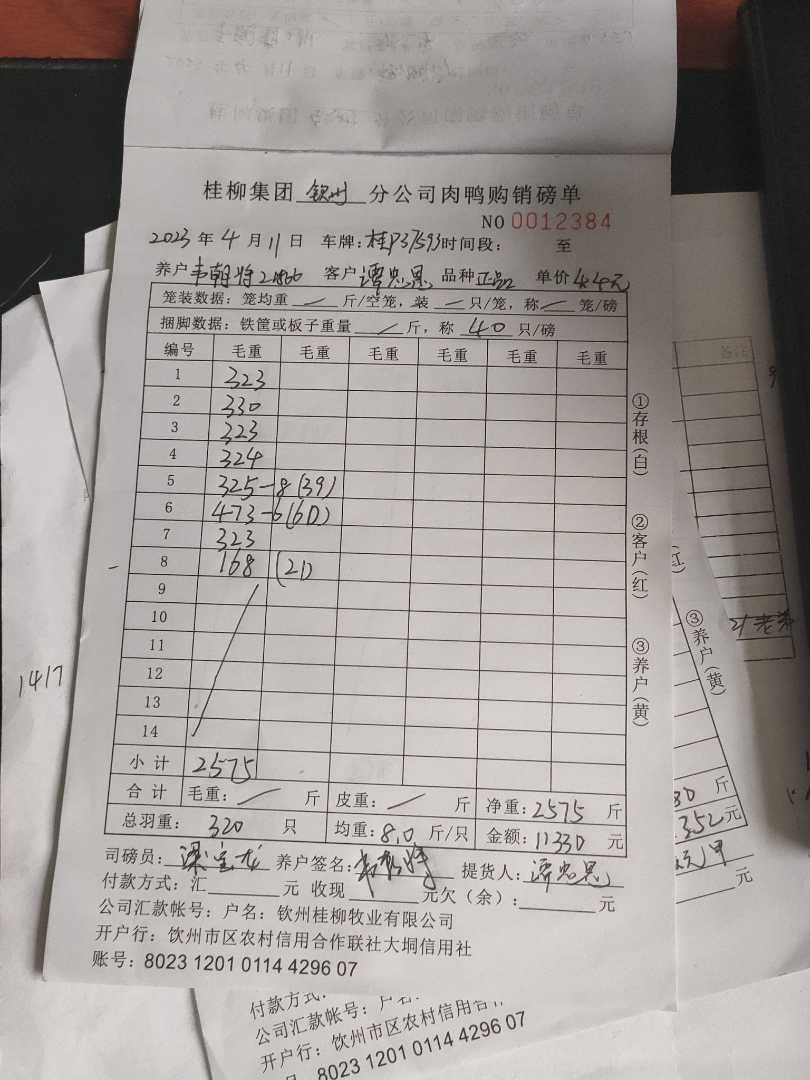 桂柳集团 钦州 分公司肉鸭购销磅单
NO 0012384
2023 年 4 月 11 日 车牌：桂P37593 时间段： 至
养户 韦朝将 客户 谭忠恩 品种 正品 单价 4.4元
笼装数据：笼均重 / 斤/空笼，装 / 只/笼，称 / 笼/磅
捆脚数据：铁筐或板子重量 / 斤，称 40 只/磅
编号 毛重 毛重 毛重 毛重 毛重 毛重
1 323
2 330
3 323
4 324
5 325-8(39)
6 473-6(60)
7 323
8 168 (21)
9
10
11
12
13
14
小计 2575
合计 毛重： / 斤 皮重： / 斤 净重：2575 斤
总羽重： 320 只 均重：8.0 斤/只 金额：11330 元
司磅员： 梁宝龙 养户签名：韦朝将 提货人：谭忠恩
付款方式：汇 元 收现 元欠（余）： 元
公司汇款帐号：户名：钦州桂柳牧业有限公司
开户行：钦州市区农村信用合作联社大垌信用社
账号：8023 1201 0114 4296 07
①存根（白）
②客户（红）
③养户（黄）
1417
③养户（黄）
斤
352元
元
付款方式：
公司汇款帐号：户名
开户行：钦州市区农村信用合
8023 1201 0114 4296 07